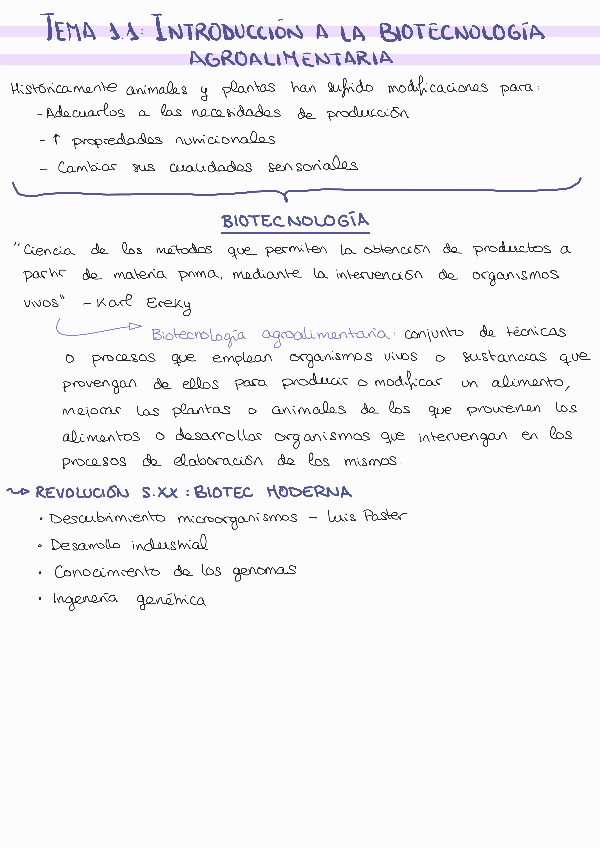 TEMA 1.1: INTRODUCCIÓN A LA BIOTECNOLOGÍA
AGROALIMENTARIA
Históricamente animales y plantas han sufrido modificaciones para:
- Adecuarlos a las necesidades de producción
- ↑ propiedades nutricionales
- Cambiar sus cualidades sensoriales
BIOTECNOLOGÍA
"Ciencia de los métodos que permiten la obtención de productos a
partir de materia prima, mediante la intervención de organismos
vivos" - Karl Ereky
Biotecnología agroalimentaria: conjunto de técnicas
o procesos que emplean organismos vivos o sustancias que
provengan de ellos para producir o modificar un alimento,
mejorar las plantas o animales de los que provienen los
alimentos o desarrollar organismos que intervengan en los
procesos de elaboración de los mismos.
↝ REVOLUCIÓN S.XX: BIOTEC MODERNA
• Descubrimiento microorganismos - Luis Paster
• Desarrollo industrial
• Conocimiento de los genomas
• Ingeneria genética